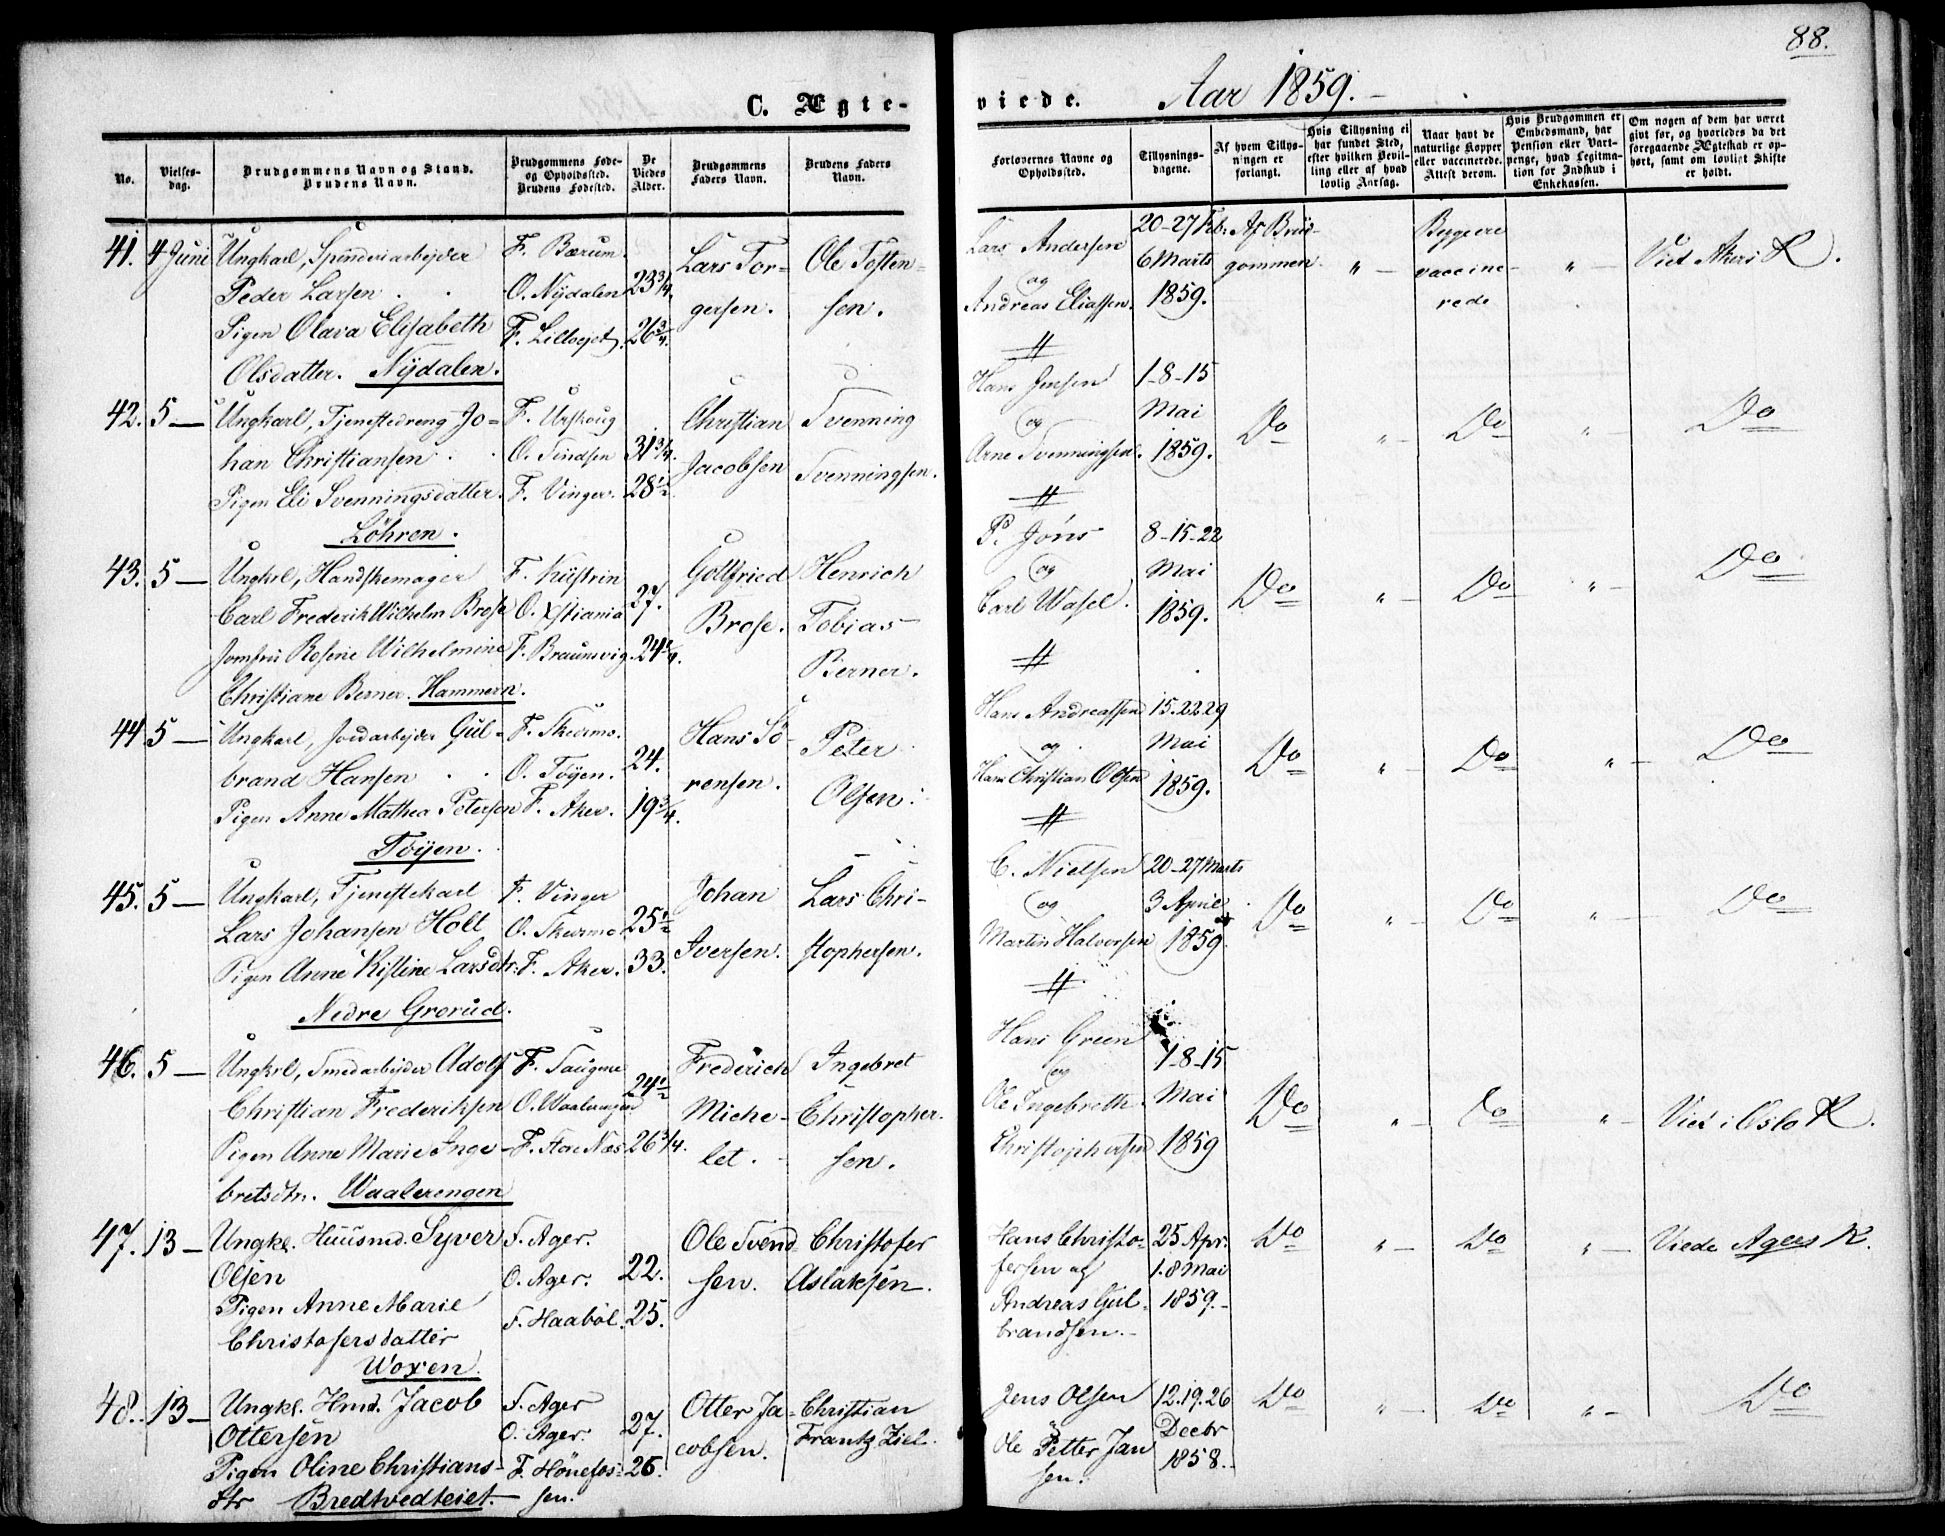 88.
C. Ægte-
viede. Aar 1859.
No.
Vielses-
dag.
Brudgommens Navn og Stand.
Brudens Navn.
Brudgommens Føde-
og Opholdssted.
Brudens Fødested.
De
Viedes
Alder.
Brudgommens
Faders Navn.
Brudens Faders
Navn.
Forlovernes Navne og
Opholdssted.
Tillysnings-
dagene.
Af hvem Tillys-
ningen er
forlangt.
Hvis Tillysning ei
har fundet Sted,
efter hvilken Bevil-
ling eller af hvad
lovlig Aarsag.
Naar havt de
naturlige Kopper
eller vaccinerede.
Attest derom.
Hvis Brudgommen er
Embedsmand, har
Pension eller Vart-
penge, hvad Legitima-
tion for Indskud i
Enkekassen.
Om nogen af dem har været
givt før, og hvorledes da det
foregaaende Ægteskab er op-
hørt, samt om lovligt Skifte
er holdt.
41. 4 Juni
Ungkarl, Spinderiarbejder
Peder Larsen
Pigen Olava Elisabeth
Olsdatter. Nÿdalen.
F. Bærum.
O. Nÿdalen
23 3/4.
26 3/4.
Lars Tor-
gersen.
Ole Tosten-
sen.
Lars Andersen
og
Andreas Eliassen.
20-27 Feb.
6 Marts
1859.
Af Brud-
gommen.
" Begge
vaccine-
rede
" Viet Akers K.
42. 5 —
Ungkarl, Tjenestedreng Jo-
han Christiansen
Pigen Eli Svenningsdatter.
Löhren.
F. Urskoug
F. Vinger.
31 3/4.
28 1/2
Christian
Jacobsen
Svenning
Svenningsen.
Hans Jensen
og
Arne Svenningsen.
1-8-15
Mai
1859.
Do " Do " Do
43. 5 —
Ungkrl, Handskemager
Carl Frederik Wilhelm Brose
Jomfru Rosine Wilhelmine
Christiane Berner. Hammern.
F. Küstrin
O. Xstiania
F. Braunsvig.
27.
24 1/4.
Gottfried
Brose.
Henrich
Tobias
Berner.
P. Jöns
og
Carl Wasel.
8-15-22
Mai
1859.
Do " Do " Do
44. 5 —
Ungkarl, Jordarbejder Gul-
brand Hansen
Pigen Anne Mathea Petersen
Töÿen.
F. Skedsmo.
O. Töÿen.
F. Aker.
24.
19 3/4.
Hans Sö-
rensen.
Peter
Olsen.
Hans Andreassen
og
Hans Christian Olsen
15.22.29
Mai
1859.
Do " Do " Do
45. 5 —
Ungkarl, Tjenestekarl
Lars Johansen Holt
Pigen Anne Kistine Larsdtr.
Nedre Grorud.
F. Vinger
O. Skedsmo
F. Aker.
25 1/2
33.
Johan
Iversen.
Lars Chri-
stophersen.
C. Nielsen
og
Martin Halvorsen
20-27 Marts
3 April
1859.
Do " Do " Do
46. 5 —
Ungkrl, Smedarbejder Adolf
Christian Frederiksen
Pigen Anne Marie Inge-
bretsdtr. Waalerengen
F. Saugene
O. Waalerengen
24 1/2
26 3/4.
Frederich
Miche-
let.
Ingebret
Christopher-
sen.
Hans Green
og
Ole Ingebreth
Christophersen
1-8-15
Mai
1859
Do " Do " Viet i Oslo K.
47. 13 —
Ungkl. Huusmd. Syver
Olsen
Pigen Anne Marie
Christofersdatter
Woxen.
F. Ager.
O. Ager.
F. Haaböl.
22.
25.
Ole Svend
sen.
Christofer
Aslaksen.
Hans Christo-
fersen og
Andreas Gul-
brandsen.
25 Apr.
1.8 Mai
1859.
Do " Do " Viede Agers K.
48. 13 —
Ungkl. Hmd. Jacob
Ottersen
Pigen Oline Christians-
dtr Bredtvedteiet.
F. Ager
O. Ager.
F. Hönefos-
sen.
27.
26.
Otter Ja-
cobsen.
Christian
Frantz Ziel.
Jens Olsen
Ole Petter Jan
sen.
12.19.26
Decbr
1858.
Do " Do " Do